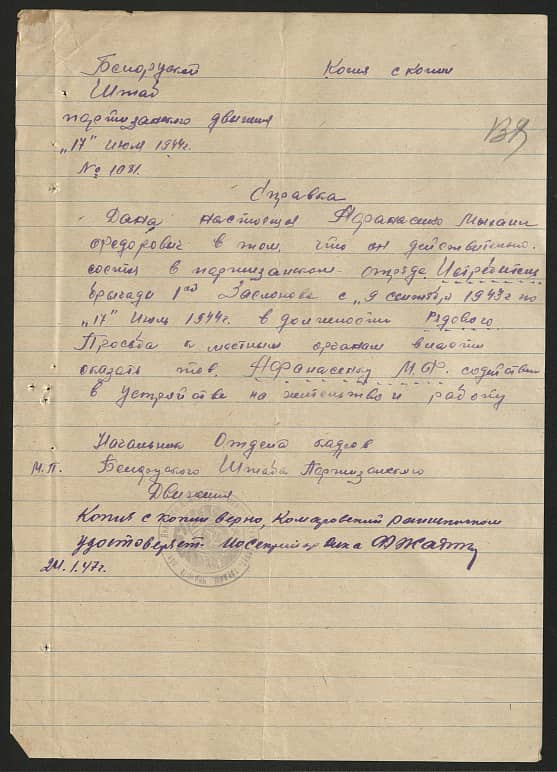 Белорусский Копия с копии
Штаб
партизанского движения
"17" июля 1944г.
№ 1081.
ВЯ
Справка
Дана настоящая Афанасенко Михаил
Федорович в том, что он действительно
состоял в партизанском отряде Истребитель
бригады 1ой Заслонова с "9 сентября 1943г по
"17" Июль 1944г. в должности Рядового
Просьба к местным органам власти
оказать тов. Афанасенку М.Ф. содействие
в устройстве на жительство и работу
Начальник Отдела кадров
М.П. Белоруского Штаба Партизанского
Движения
Копия с копии верно, Комаровский
удостоверяет
24.1.47г.